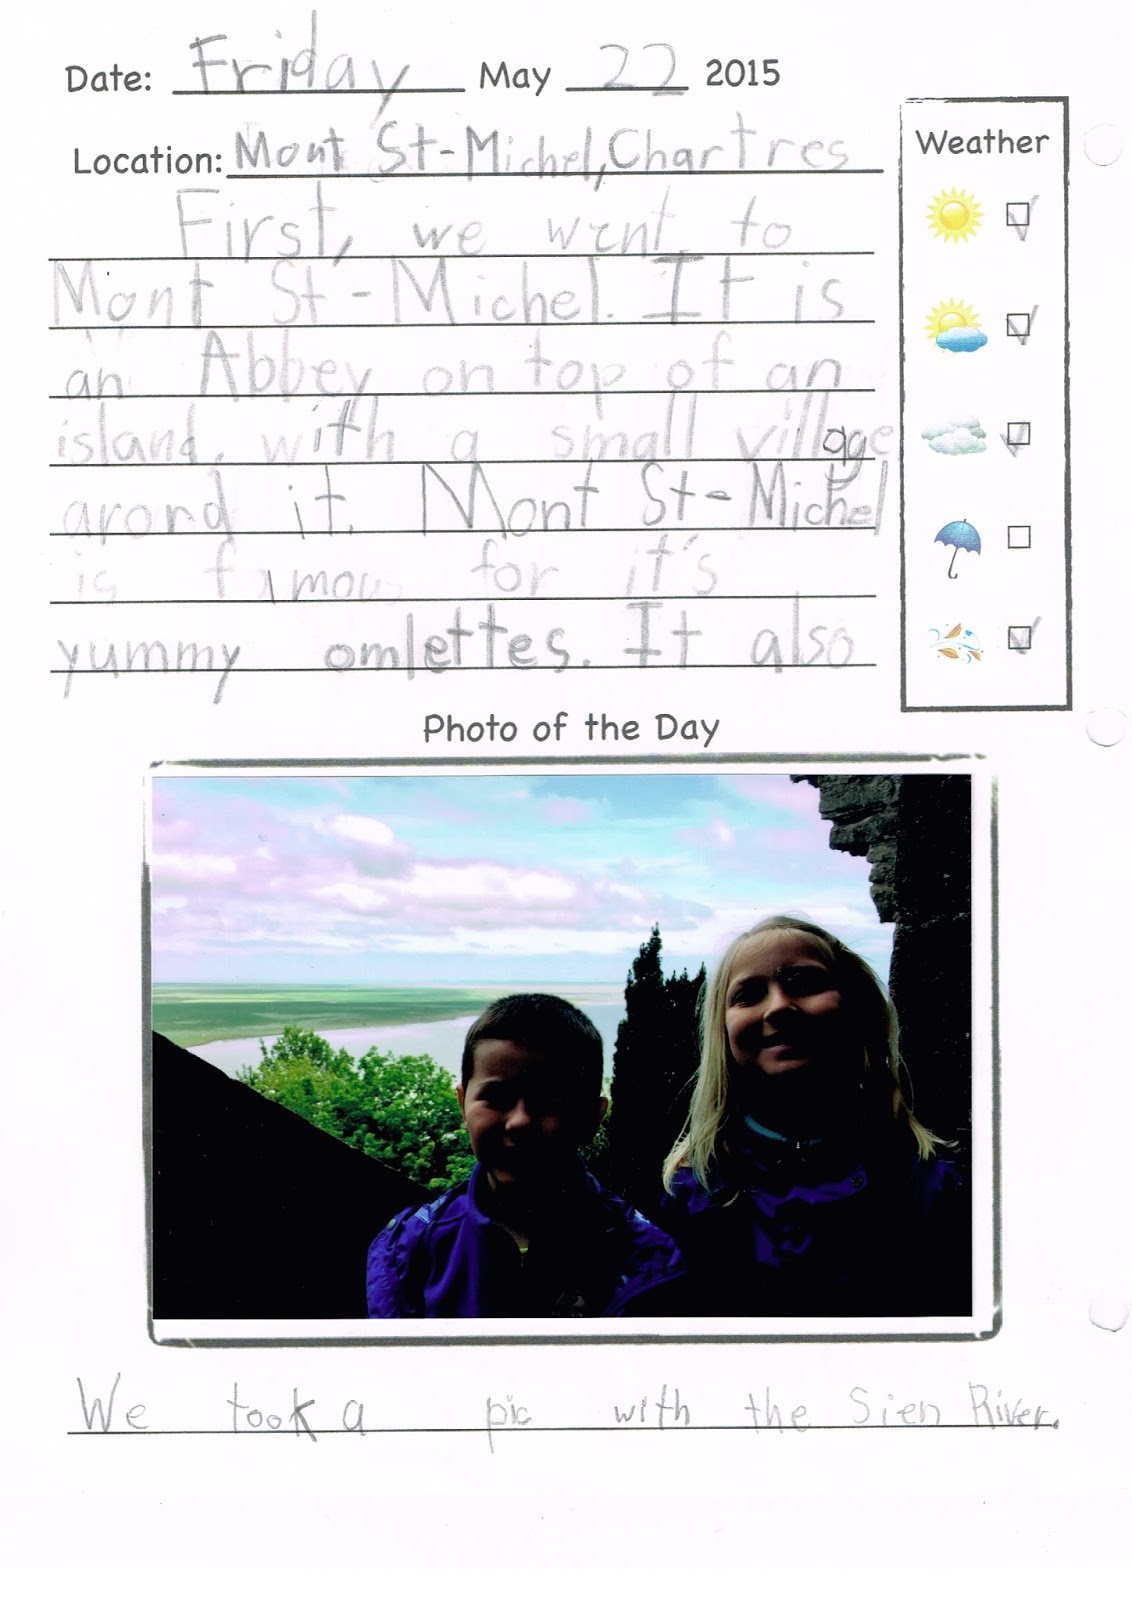 Date: Friday May 22 2015
Location: Mont St-Michel, Chartres
Weather
First, we went to
Mont St-Michel. It is
an Abbey on top of an
island, with a small village
arord it. Mont St-Michel
is famous for it's
yummy omlettes. It also
Photo of the Day
We took a pic with the Sien River.